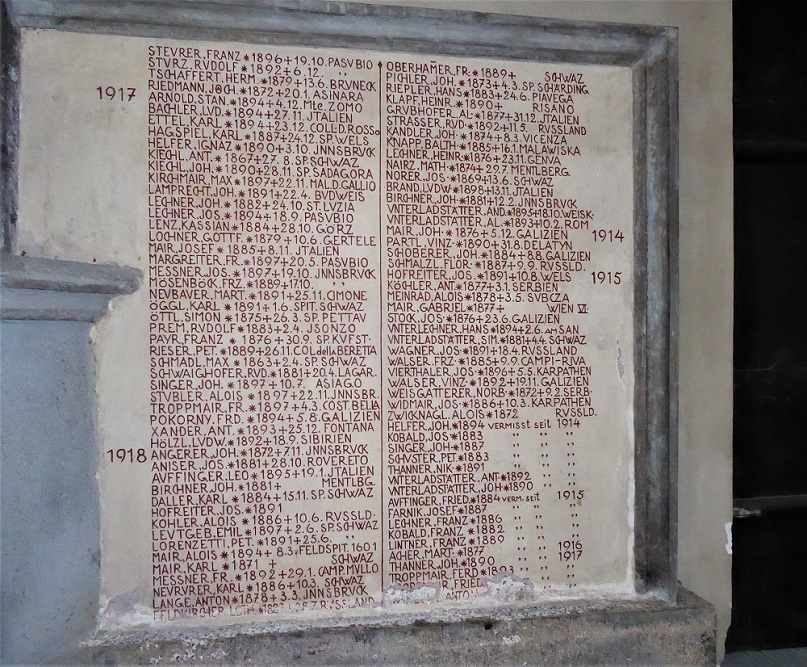 STEVRER.FRANZ*1896+19.10.PASVBIO
STVRZ.RVDOLF*1892+6.12. " "
TSCHAFFERT.HERM.*1879+13.6.BRVNECK
1917
RIEDMANN.JOCH.*1872+20.1.ASINARA
ARNOLD.STAN.*1894+4.12.Mte.ZOMO
BACHLER.LVD.*1894+27.11.JTALIEN
ETTEL.KARL*1894+23.12.COLL.D.ROSSO
HAGSPIEL.KARL*1887+24.12.SP.WELS
HELFER.IGNAZ*1890+3.10.JNNSBRVCK
KIECHL.ANT.*1867+27.8.SP.SCHWAZ
KIECHL.JOH.*1890+28.11.SP.SADAGORA
KIRCHMAIR.MAX*1897+22.11.MALD.GALLIO
LAMPRECHT.JOH.*1891+22.4.BVDWEIS
LECHNER.JOH.*1882+24.10.ST.LVZIA
LECHNER.JOS.*1894+18.9.PASVBIO
LENZ.KASSIAN*1884+28.10.GÖRZ
LOCHNER.GOTTF.*1879+10.6.GERTELE
MAIR.JOSEF*1885+8.11.JTALIEN
MARGREITER.FR.*1897+20.5.PASVBIO
MESSNER.JOS.*1897+19.10.JNNSBRVCK
MÖSENBÖCK.FRZ.*1889+17.10. " "
NEVBAVER.MART.*1891+25.11.CIMONE
ÖGGL.KARL*1891+1.6.SPIT.SCHWAZ
ÖTTL.SIMON*1875+26.3.SP.PETTAV
PREM.RVDOLF*1883+2.4.JSONZO
PAYR.FRANZ*1876+30.9.SP.KVFST.
RIESER.PET.*1889+26.11.COL della BERETTA
SCHMADL.MAX*1863+2.4.SP.SCHWAZ
SCHWAIGHOFER.RVD.*1881+20.4.LAGAR.
SINGER.JOH.*1897+10.7. ASIAGO
STVBLER.ALOIS*1897+22.11.JNNSBR.
TROPPMAIR.FR.*1897+4.3.COST.BELLA
POKORNY.FRD.*1894+5.8.GALIZIEN
XANDER.ANT.*1893+25.12.FONTANA
HÖLZL.LVDW.*1892+18.9.SIBIRIEN
1918
ANGERER.JOH.*1872+7.11.JNNSBRVCK
ANISER.JOS.*1881+28.10.ROVERETO
AVFFINGER.LEO*1895+19.1.JTALIEN
BIRCHNER.JOH.*1881+ MENTLBG.
DALLER.KARL*1884+15.11.SP.SCHWAZ
HOFREITER.JOS.*1891
KOHLER.ALOIS*1886+10.6.RVSSLD.
LEVTGEB.EMIL*1897+2.6.SP.SCHWAZ
LORENZETT.P.*1891+25.6. " "
MAIR.ALOIS*1894+8.3.FELDSPIT.1601
MAIR.KARL*1871+ SCHWAZ
MESSNER.FR.*1892+29.1.CAMP.MVLLO
NEVRVRER.KARL*1886+10.3.SCHWAZ
LANGE.ANTON*1878+3.3.JNNSBRVCK
OBERHAMER.FR.*1889+ SCHWAZ
PICHLER.JOH.*1873+4.3.SP.SCHÄRDING
RIEPLER.HANS*1883+24.6.PIAVEGA
KLAPF.HEINR.*1890+ RISANO
GRVBHOFER.AL.*1877+31.12.JTALIEN
STRASSER.RVD.*1892+11.5.RVSSLAND
KANDLER.JOH.*1874+8.3.VICENZA
KNAPP.BALTH.*1885+16.1.MALAWISKA
LECHNER.HEINR.*1876+23.11.GENVA
NAIRZ.MATH.*1874+29.7.MENTLBERG.
NORER.JOS.*1869+13.6.SCHWAZ
BRAND.LVDW.*1898+13.11.JTALIEN
BIRCHNER.JOH.*1881+12.2.JNNSBRVCK
VNTERLADSTÄTTER.AND.*1895+18.10.WEISK.
VNTERLADSTÄTTER.AL.*1893+10.2.ROM
MAIR.JOH.*1876+5.12.GALIZIEN 1914
PARTL.VINZ.*1890+31.8.DELATYN
SCHOBERER.JOH.*1884+8.8.GALIZIEN
SCHMALZL.FLOR.*1887+9.9.RVSSLD.
HOFREITER.JOS.*1891+10.8.WELS 1915
KÖCHLER.ANT.*1877+3.1.SERBIEN
MEINRAD.ALOIS*1878+3.5.SVBCZA
MAIR.GABRIEL*1877+ WIEN VI
STOCK.JOS.*1876+23.6.GALIZIEN
VNTERLECHNER.HANS*1894+2.6.AM SAN
VNTERLADSTÄTTER.SIM.*1881+4.4.SCHWAZ
WAGNER.JOS.*1891+18.4.RVSSLAND
WALSER.FRZ.*1885+9.9.CAMPI-RIVA
VIERTHALER.JOS.*1896+5.5.KARPATHEN
WALSER.VINZ.*1892+19.11.GALIZIEN
WEISGATTERER.NORB.*1872+9.2.SERB.
WIDMAIR.JOS.*1886+10.3.KARPATHEN
ZWICKNAGL.ALOIS*1872 RVSSLD.
HELFER.JOH.*1894 VERMISST SEIT 1914
KOBALD.JOS.*1883 " " "
SINGER.JOH.*1887 " " "
SCHVSTER.PET.*1883 " " "
THANNER.NIK.*1891 " " "
VNTERLADSTÄTTER.ANT.*1892 " "
VNTERLADSTÄTTER.JOH.*1890 " "
AVFFINGER.FRIED.*1884 VERM.SEIT 1915
FARNIK.JOSEF*1887 " " "
LECHNER.FRANZ*1886 " " "
KOBALD.FRANZ*1882 " " "
LINTNER.FRANZ*1889 " " 1916
ACHER.MART.*1877 " " 1917
THANNER.JOH.*1890 " " "
TROPPMAIR.FERD.*1893 " " "